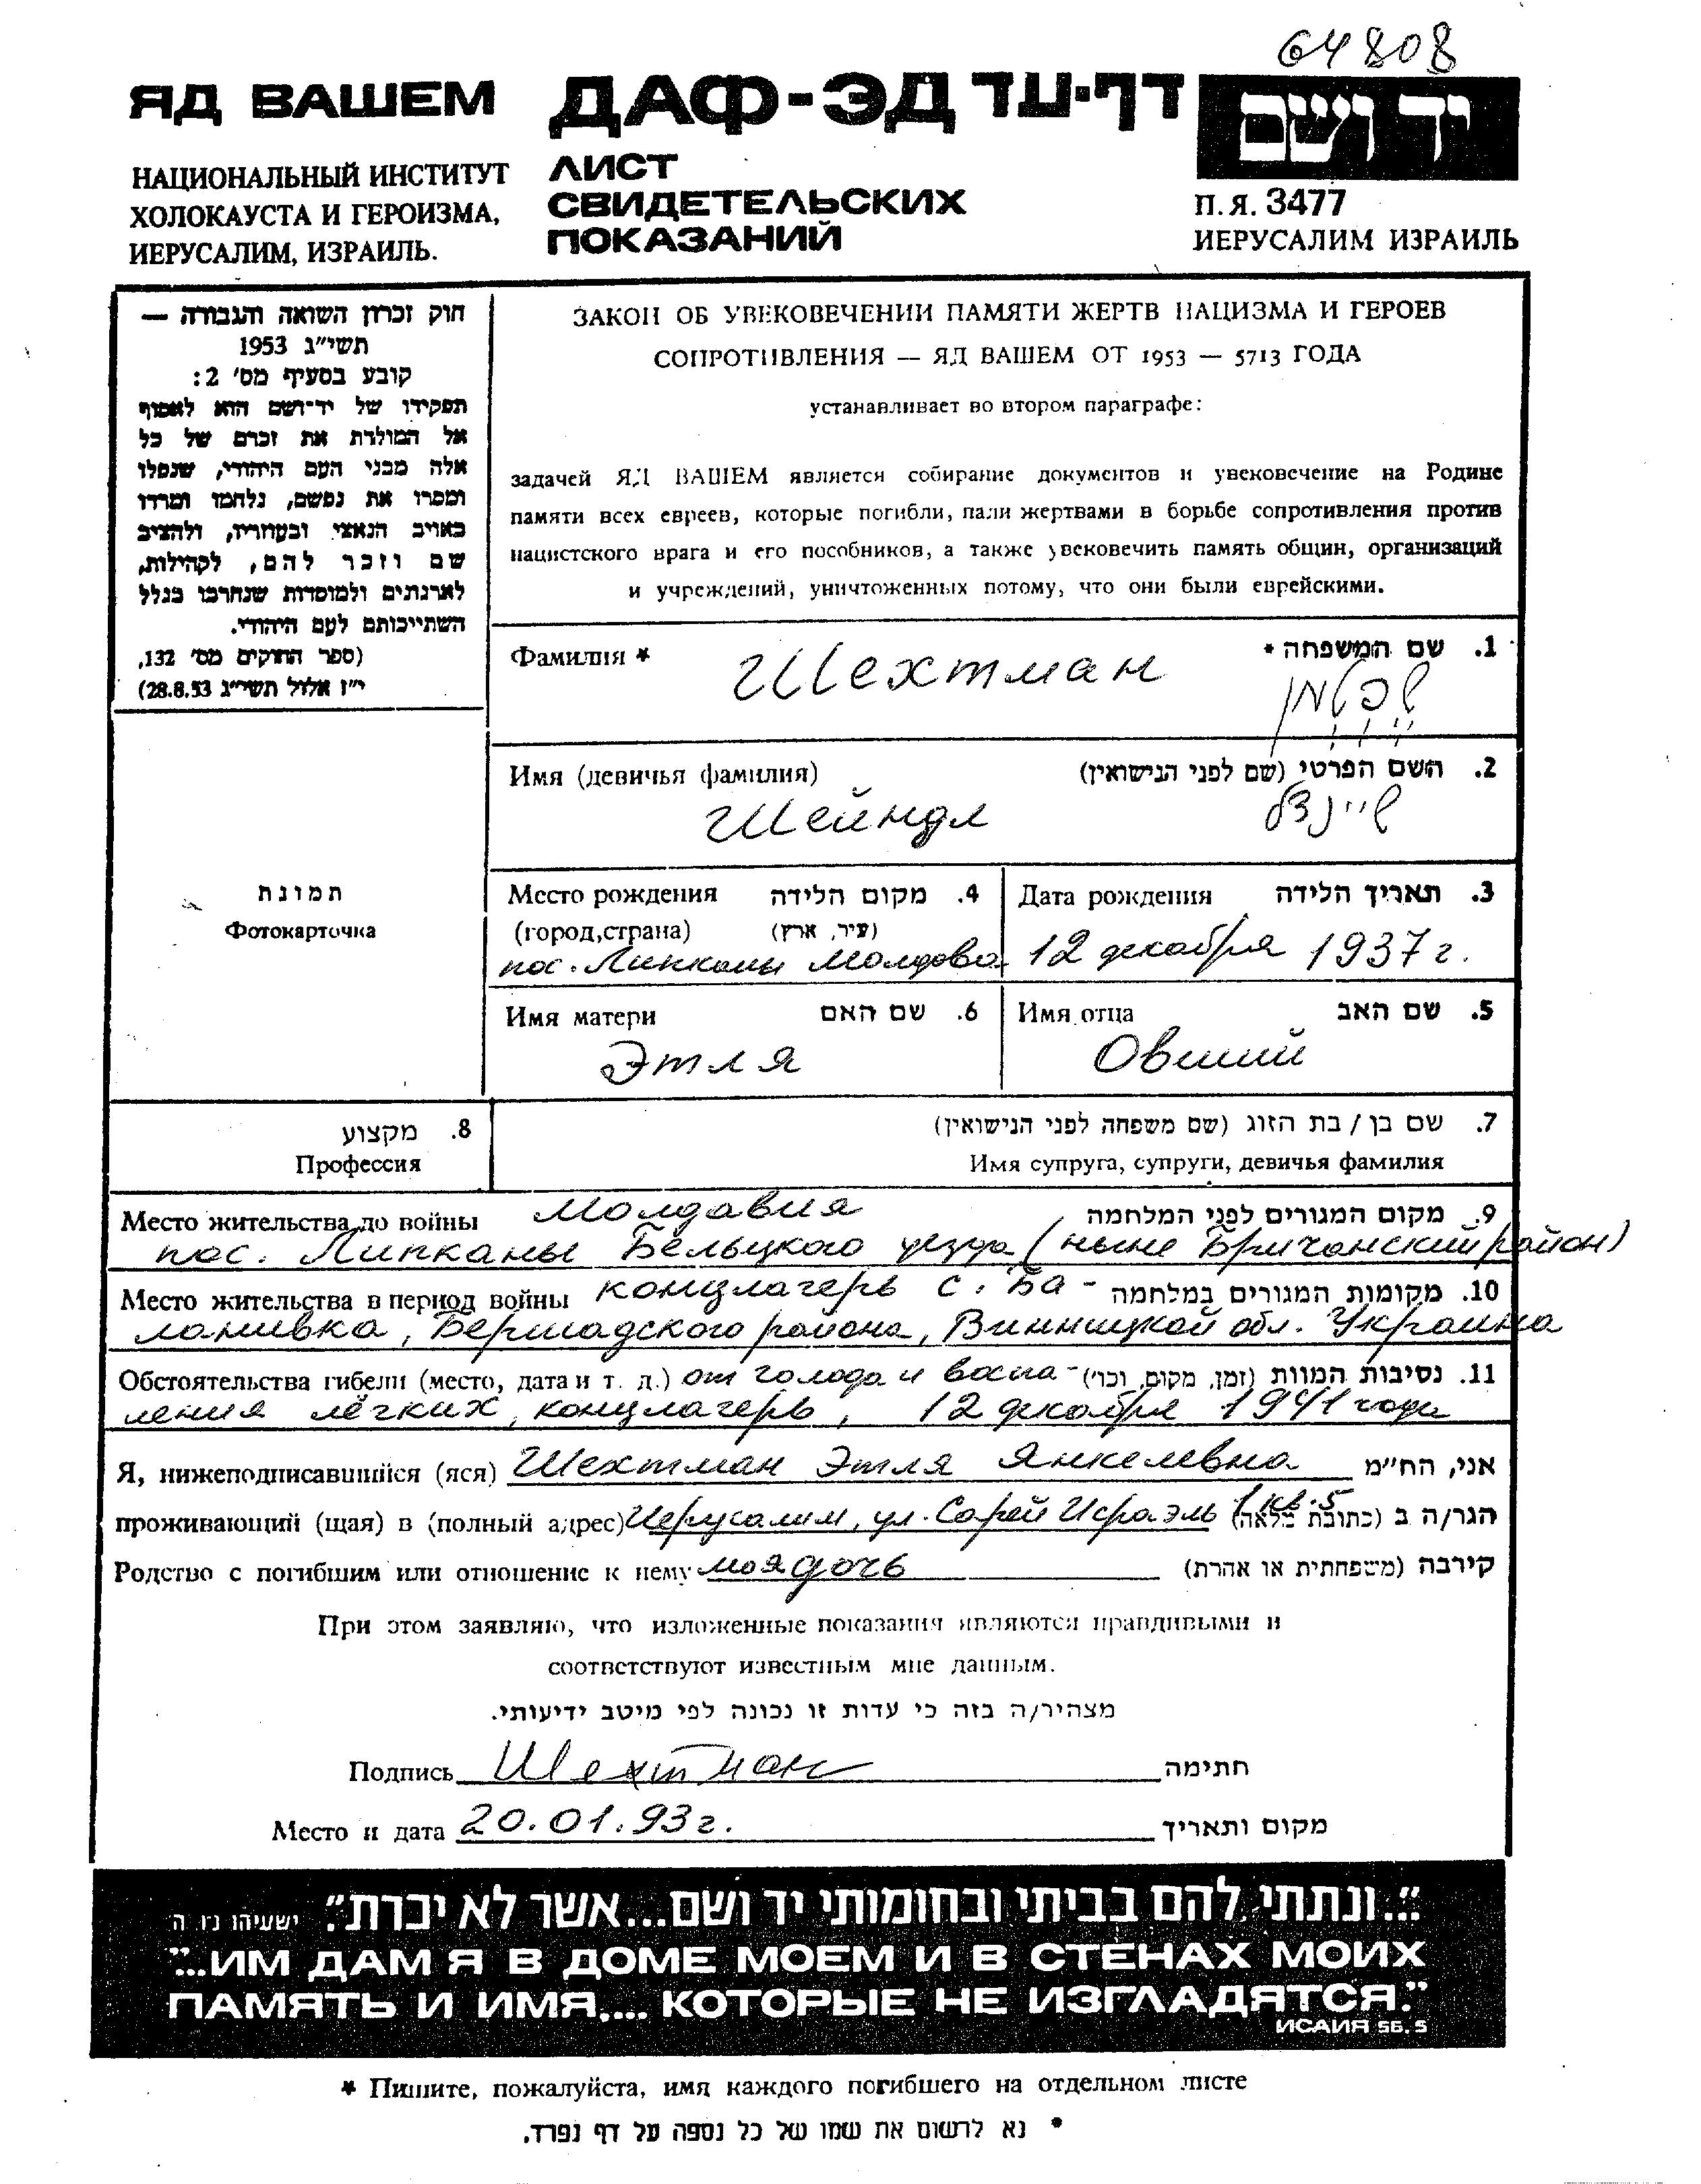 64808
ЯД ВАШЕМ ДАФ-ЭД דף-עד יד ושם
НАЦИОНАЛЬНЫЙ ИНСТИТУТ
ХОЛОКАУСТА И ГЕРОИЗМА,
ИЕРУСАЛИМ, ИЗРАИЛЬ.
ЛИСТ
СВИДЕТЕЛЬСКИХ
ПОКАЗАНИЙ
П.Я. 3477
ИЕРУСАЛИМ ИЗРАИЛЬ
חוק זכרון השואה והגבורה —
תשי"ג 1953
קובע בסעיף מס' 2:
תפקידו של יד-ושם הוא לאסוף
אל המולדת את זכרם של כל
אלה מבני העם היהודי, שנפלו
ומסרו את נפשם, נלחמו ומרדו
באויב הנאצי ובעוזריו, ולהציב
שם וזכר להם, לקהילות,
לארגונים ולמוסדות שנחרבו בגלל
השתייכותם לעם היהודי.
(ספר החוקים מס' 132,
י"ז אלול תשי"ג 28.8.53)
ЗАКОН ОБ УВЕКОВЕЧЕНИИ ПАМЯТИ ЖЕРТВ НАЦИЗМА И ГЕРОЕВ
СОПРОТИВЛЕНИЯ — ЯД ВАШЕМ ОТ 1953 — 5713 ГОДА
устанавливает во втором параграфе:
задачей ЯД ВАШЕМ является собирание документов и увековечение на Родине
памяти всех евреев, которые погибли, пали жертвами в борьбе сопротивления против
нацистского врага и его пособников, а также увековечить память общин, организаций
и учреждений, уничтоженных потому, что они были еврейскими.
Фамилия * Шехтман 1. שם המשפחה *
שכטמן
Имя (девичья фамилия) 2. השם הפרטי (שם לפני הנישואין)
Шейндл שיינדל
תמונת
Фотокарточка
Место рождения 4. מקום הלידה
(город,страна) (עיר, ארץ)
пос. Липканы Молдова
Дата рождения 3. תאריך הלידה
12 декабря 1937 г.
Имя матери 6. שם האם
Этля
Имя отца 5. שם האב
Овший
8. מקצוע
Профессия
7. שם בן / בת הזוג (שם משפחה לפני הנישואין)
Имя супруга, супруги, девичья фамилия
Место жительства до войны Молдавия 9. מקום המגורים לפני המלחמה
пос. Липканы Бельцкого уезда (ныне Бричанский район)
Место жительства в период войны концлагерь с. Ба- 10. מקומות המגורים במלחמה
ланивка, Бершадского района, Винницкой обл. Украина
Обстоятельства гибели (место, дата и т. д.) от голода и воспа- 11. נסיבות המוות (זמן, מקום, וכו')
ления лёгких, концлагерь, 12 декабря 1941 года
Я, нижеподписавшийся (яся) Шехтман Этля Янкелевна אני, הח"מ
проживающий (щая) в (полный адрес) Иерусалим, ул. Сарей Исраэль 1 кв.5 הגר/ה ב (כתובת מלאה)
Родство с погибшим или отношение к нему моя дочь קירבה (משפחתית או אחרת)
При этом заявляю, что изложенные показания являются правдивыми и
соответствуют известным мне данным.
מצהיר/ה בזה כי עדות זו נכונה לפי מיטב ידיעותי.
Подпись Шехтман חתימה
Место и дата 20.01.93г. מקום ותאריך
"...ונתתי להם בביתי ובחומותי יד ושם...אשר לא יכרת". ישעיהו נו, ה
"...ИМ ДАМ Я В ДОМЕ МОЕМ И В СТЕНАХ МОИХ
ПАМЯТЬ И ИМЯ,... КОТОРЫЕ НЕ ИЗГЛАДЯТСЯ."
ИСАИЯ 56, 5
* Пишите, пожалуйста, имя каждого погибшего на отдельном листе
* נא לרשום את שמו של כל נספה על דף נפרד.